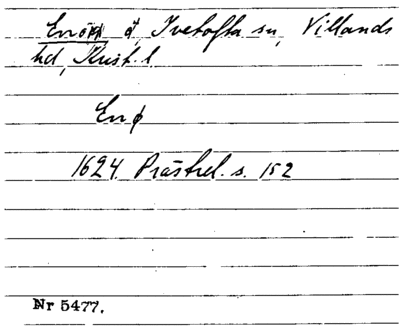 Enön ö, Ivetofta sn, Villands
hd, Krist. l.
Enø
1624. Prästrel. s. 152
Nr 5477.